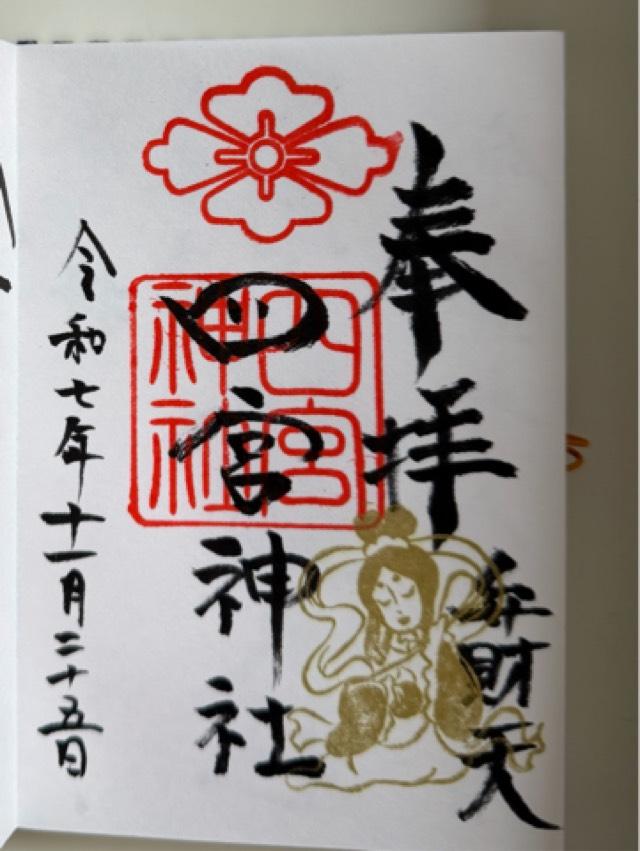 奉拝
弁財天
四宮神社
四宮
神社
令和七年十一月二十五日